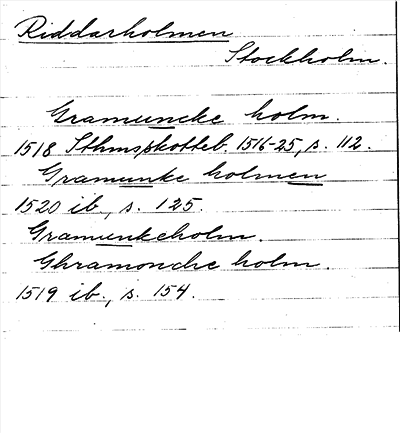 Riddarholmen
Stockholm.
Gramuncke holm.
1518 Sthmskotteb. 1516-25, s. 112.
Gramunke holmen
1520 ib., s. 125.
Gramunkeholm.
Ghramonche holm.
1519 ib., s. 154.